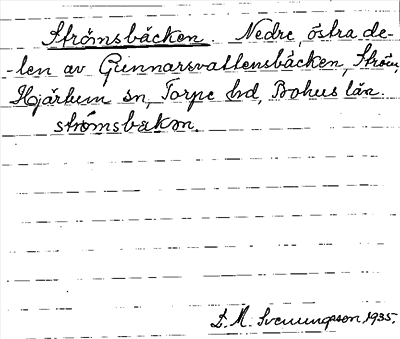 Strömsbäcken. Nedre, östra de-
-len av Gunnarsvattensbäcken, Ström,
Hjärtum sn, Torpe hd, Bohus län.
strömsbækən.
D. M. Svenungsson 1935.